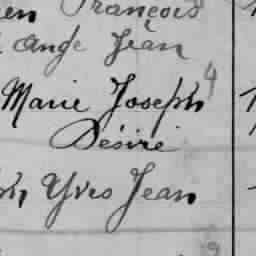 en François
Ange Jean
Marie Joseph 4
Désiré
ph, Yves Jean